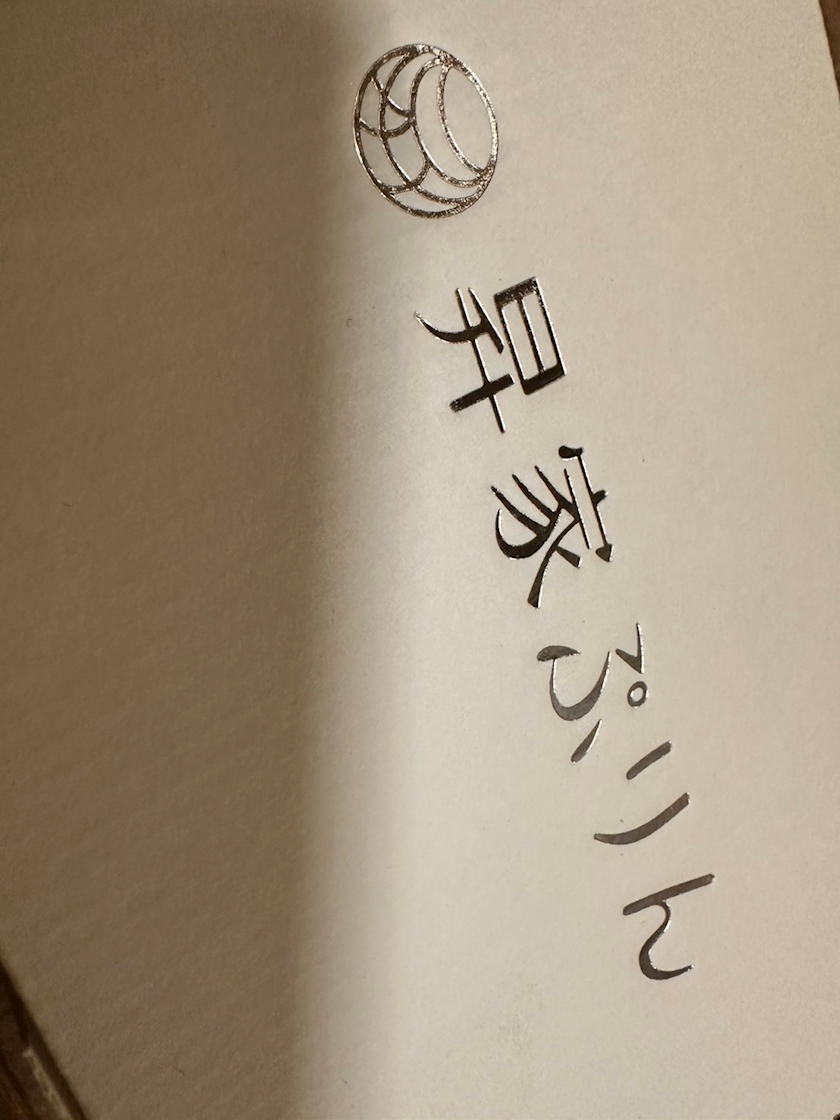 昇家ぷりん